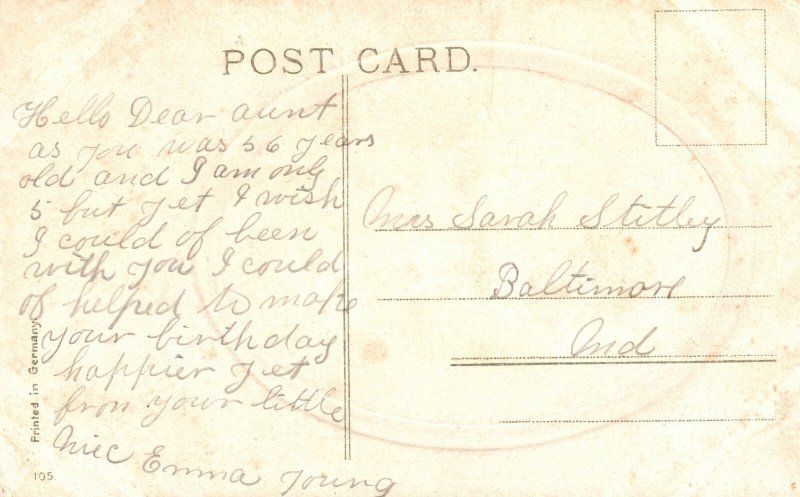 POST CARD.
Hello Dear aunt
as you was 56 years
old and I am only
5 but yet I wish
I could of been
with you I could
of helped to make
your birthday
happier yet
fron your little
Niec Emma Young
Mrs Sarah Stitley
Baltimore
Md
Printed in Germany.
105